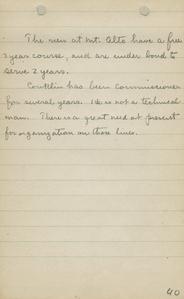 The men at Mt. Alto have a free
3 year course, and are under bond to
serve 3 years.
Conklin has been Commissioner
for several years. He is not a technical
man. There is a great need at present
for organization on those lines.
40